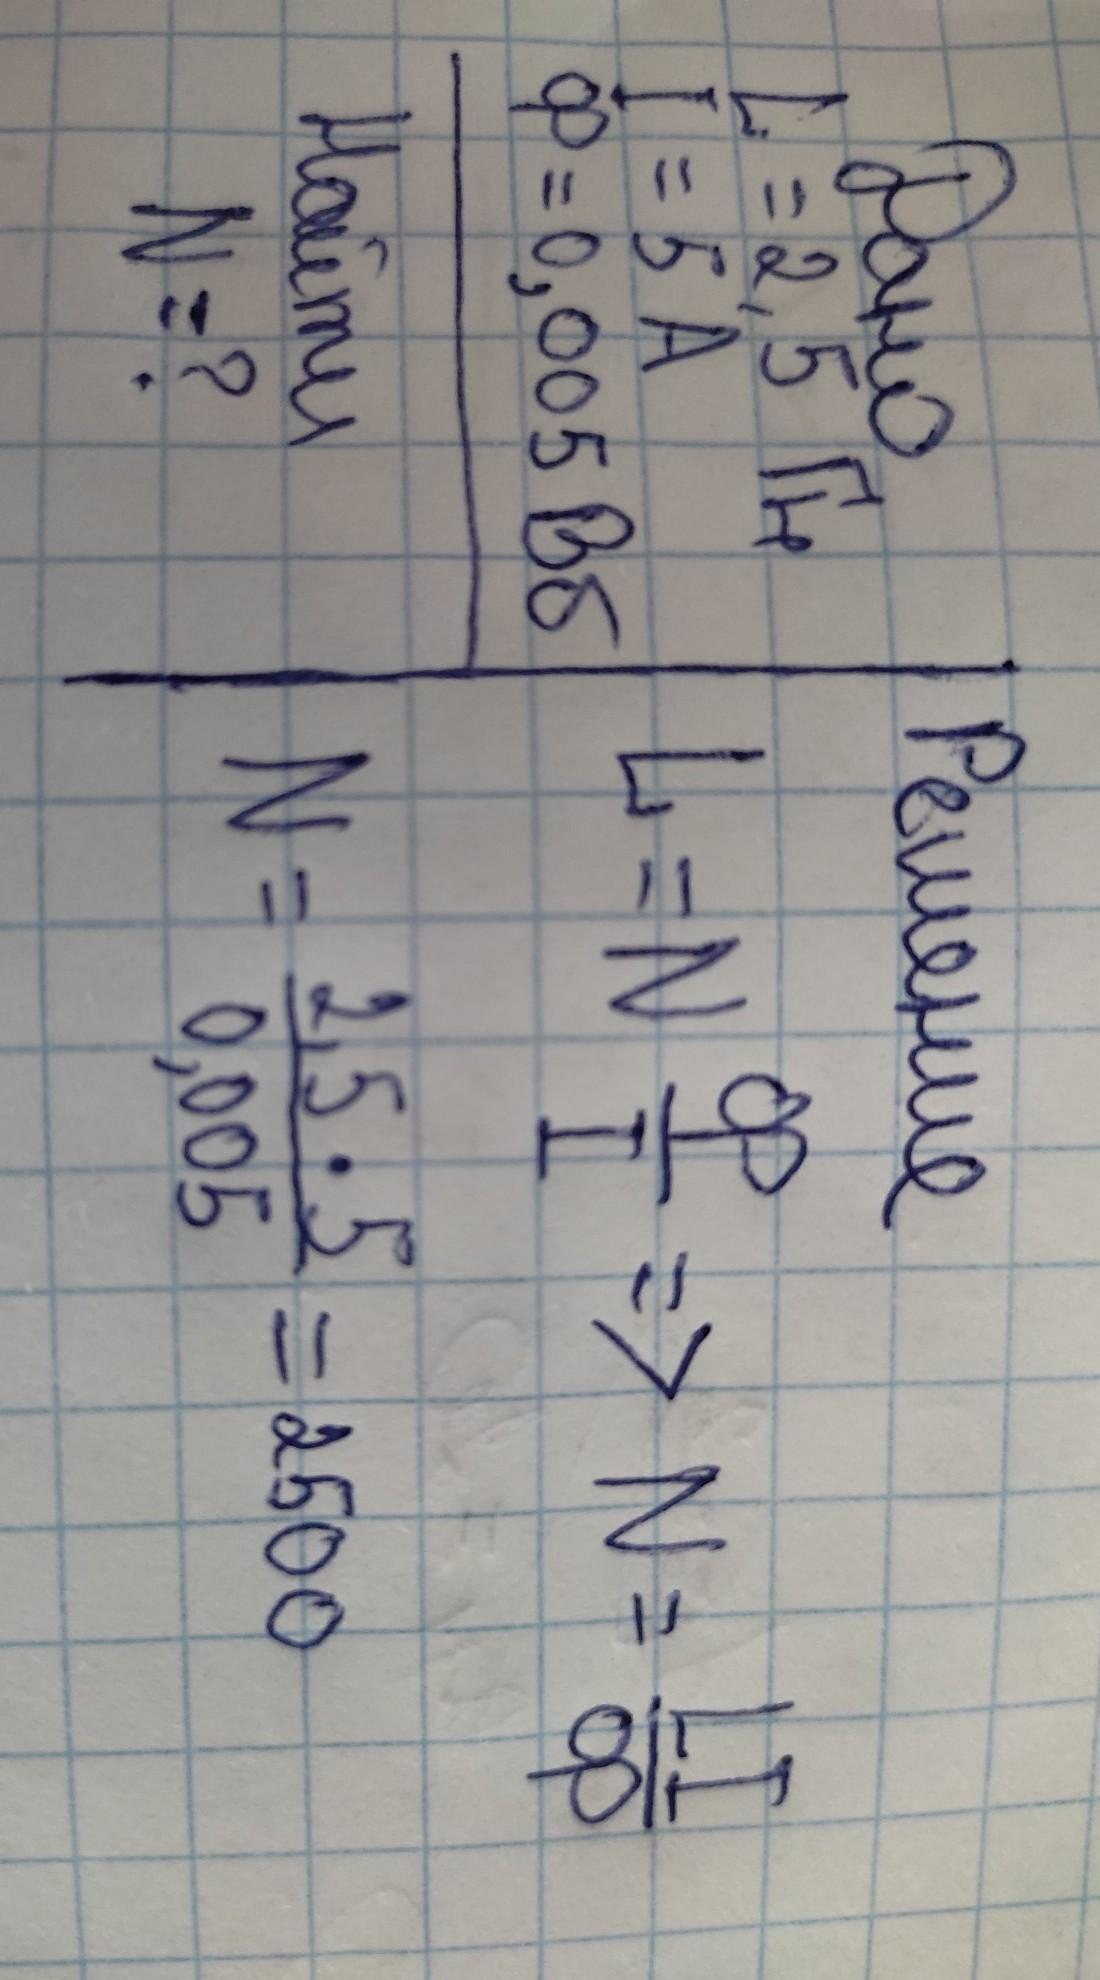 Дано
L = 2,5 Гн
I = 5 А
Ф = 0,005 Вб
Найти
N = ?
Решение
L = N Ф/I => N = LI/Ф
N = 2,5 · 5/0,005 = 2500